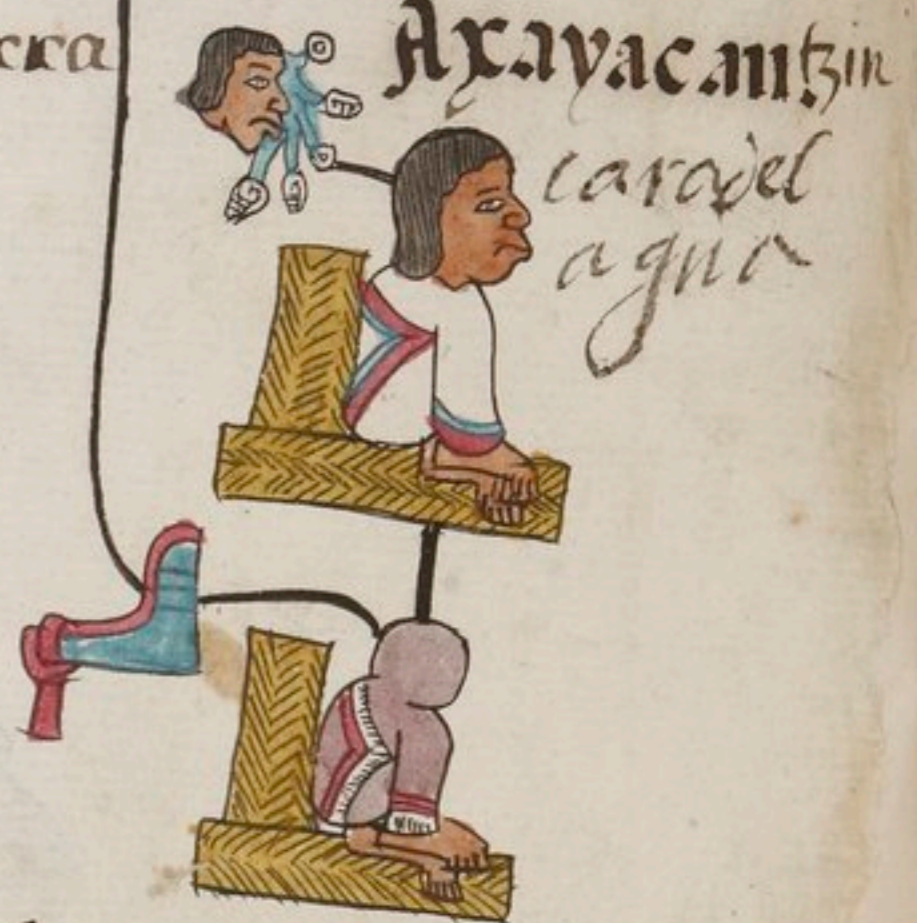 rra
Axayacantzin
cara del
agua